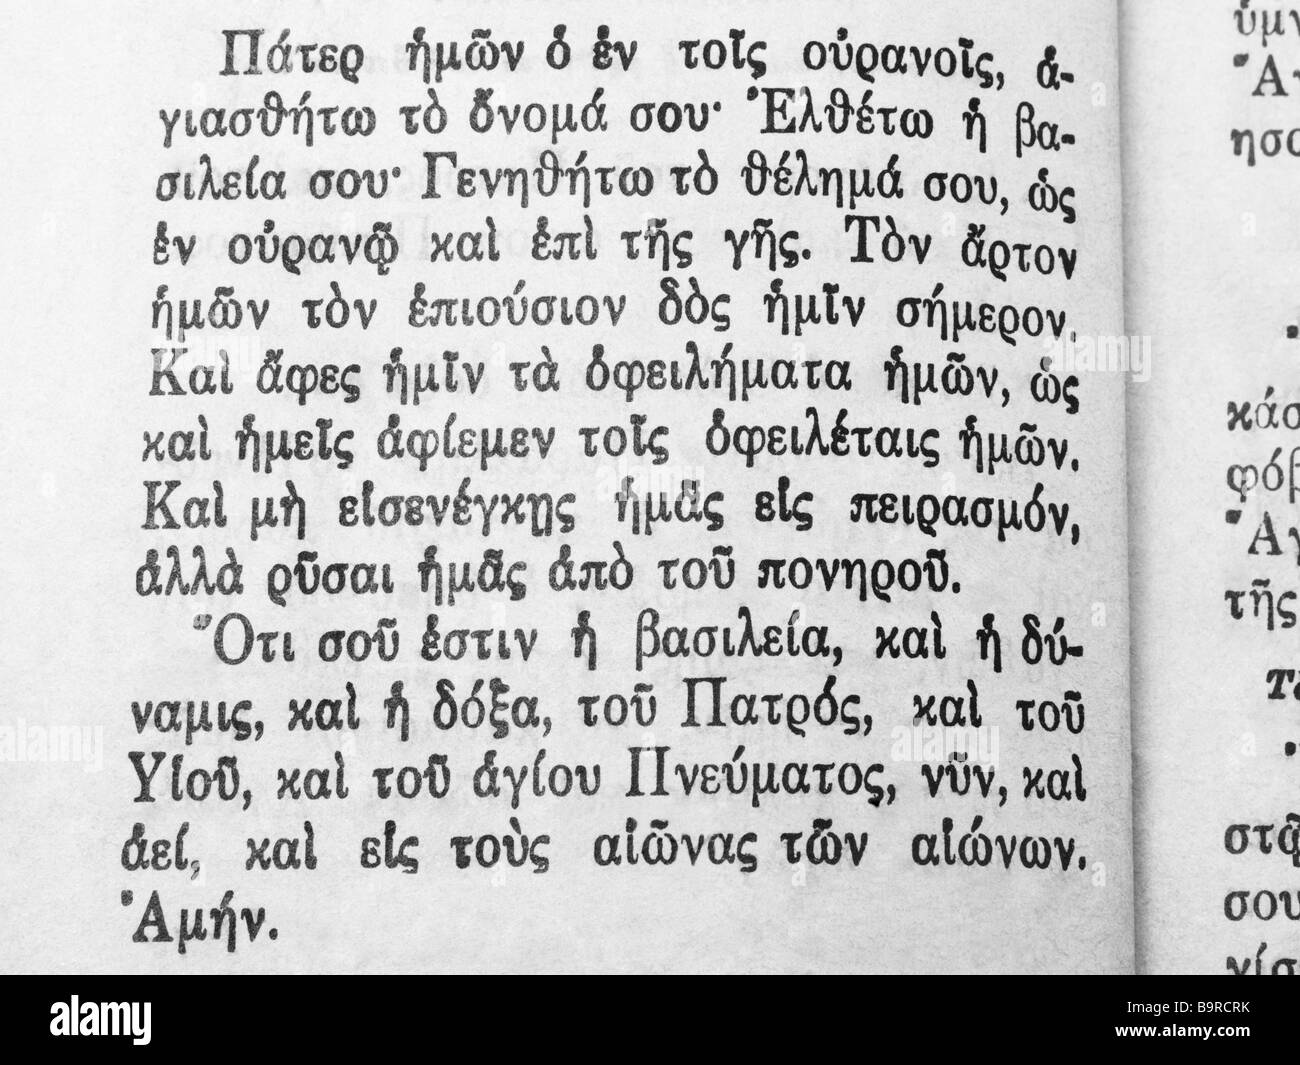 Πάτερ ἡμῶν ὁ ἐν τοῖς οὐρανοῖς, ἁ-
γιασθήτω τὸ ὄνομά σου· Ἐλθέτω ἡ βα-
σιλεία σου· Γενηθήτω τὸ θέλημά σου, ὡς
ἐν οὐρανῷ καὶ ἐπὶ τῆς γῆς. Τὸν ἄρτον
ἡμῶν τὸν ἐπιούσιον δὸς ἡμῖν σήμερον.
Καὶ ἄφες ἡμῖν τὰ ὀφειλήματα ἡμῶν, ὡς
καὶ ἡμεῖς ἀφίεμεν τοῖς ὀφειλέταις ἡμῶν.
Καὶ μὴ εἰσενέγκῃς ἡμᾶς εἰς πειρασμόν,
ἀλλὰ ρῦσαι ἡμᾶς ἀπὸ τοῦ πονηροῦ.
Ὅτι σοῦ ἐστιν ἡ βασιλεία, καὶ ἡ δύ-
ναμις, καὶ ἡ δόξα, τοῦ Πατρός, καὶ τοῦ
Υἱοῦ, καὶ τοῦ ἁγίου Πνεύματος, νῦν, καὶ
ἀεί, καὶ εἰς τοὺς αἰῶνας τῶν αἰώνων.
Ἀμήν.
τῆς
σου
alamy
Image ID: B9RCRK
www.alamy.com